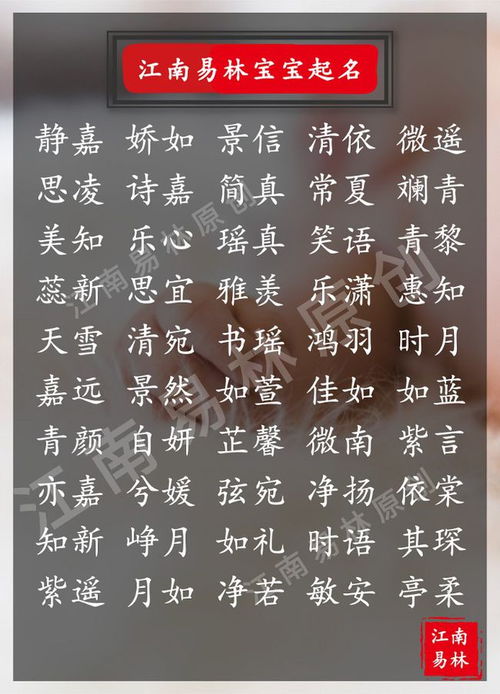 江南易林宝宝起名
静嘉 娇如 景信 清依 微遥
思凌 诗嘉 简真 常夏 斓青
美知 乐心 瑶真 笑语 青黎
蕊新 思宜 雅羡 乐潇 惠知
天雪 清宛 书瑶 鸿羽 时月
嘉远 景然 如萱 佳如 如蓝
青颜 自妍 芷馨 微南 紫言
亦嘉 兮媛 弦宛 净扬 依棠
知新 峥月 如礼 时语 其琛
紫遥 月如 净若 敏安 亭柔
江南易林原创
江南易林原创
江南易林原创
江南
易林